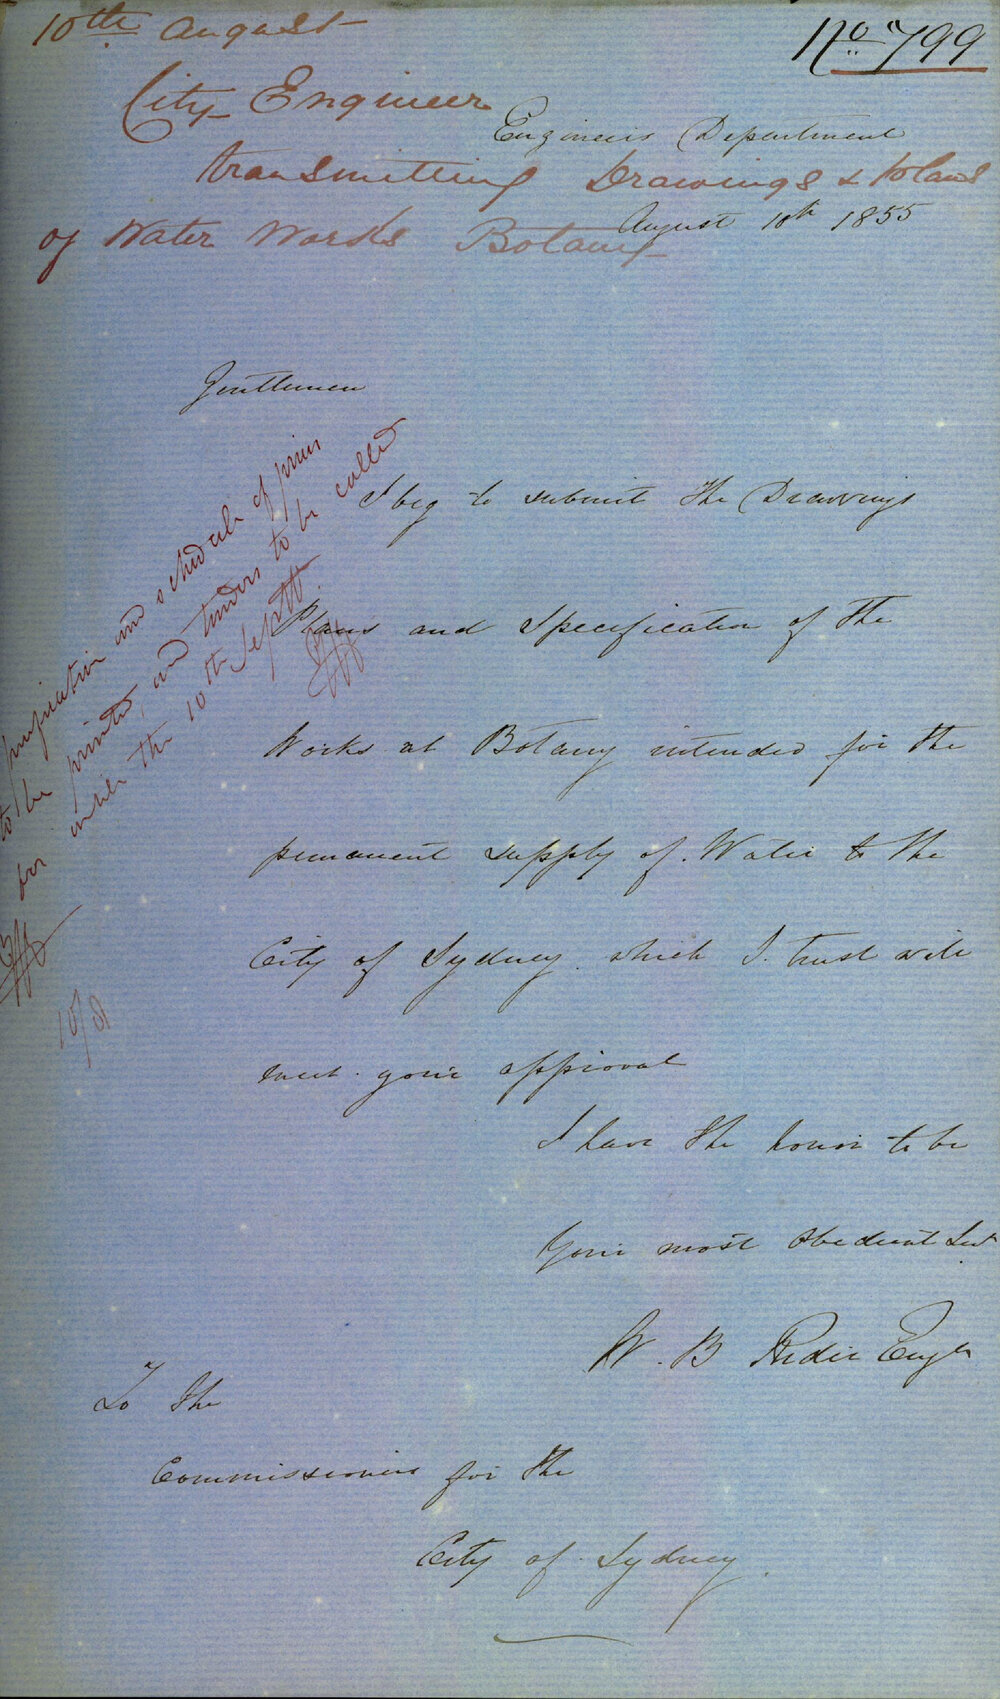 10th August
No 799
City Engineer
transmitting Drawings & Plans
of Water Works Botany
Engineers Department
August 10th 1855
Gentlemen
I beg to submit the Drawings
Plans and Specification of the
Works at Botany intended for the
permanent supply of Water to the
City of Sydney. which I trust will
meet your approval
I have the honor to be
Your most obedient Sert
W. B Rider Engr
To the
Commissioners for the
City of Sydney
Specification and schedule of prices
to be printed, and tenders to be called
for under the 10th Septr.
10/8